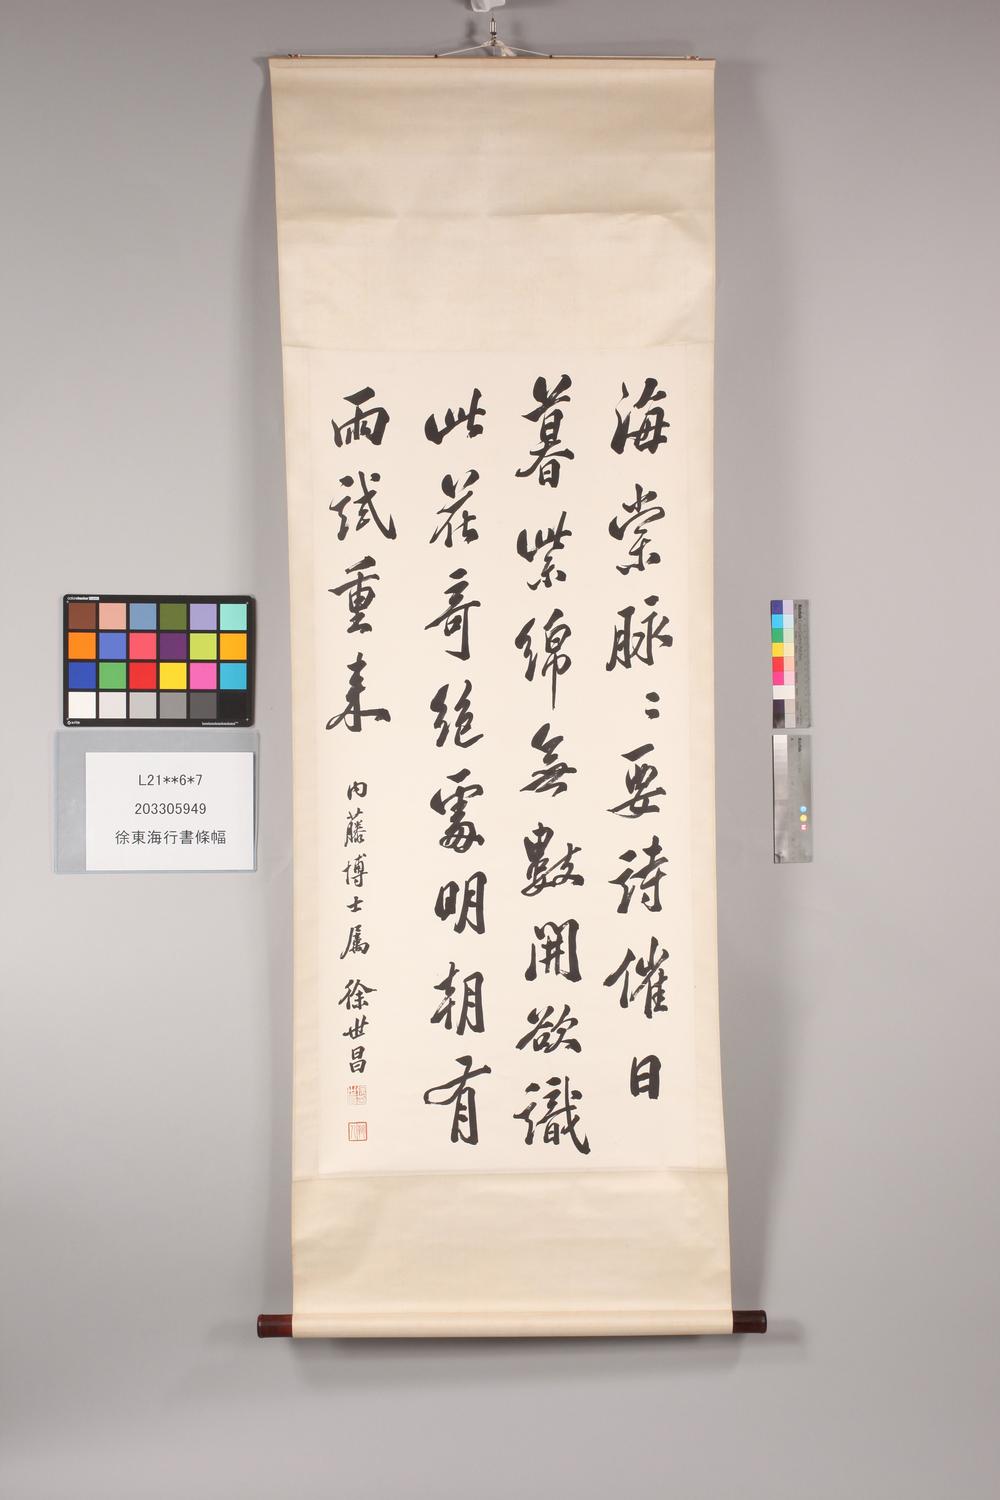 海棠脉〻要詩催日
暮紫綿無數開欲識
此花奇絕處明朝有
雨試重来
内藤博士屬 徐世昌
L21**6*7
203305949
徐東海行書條幅